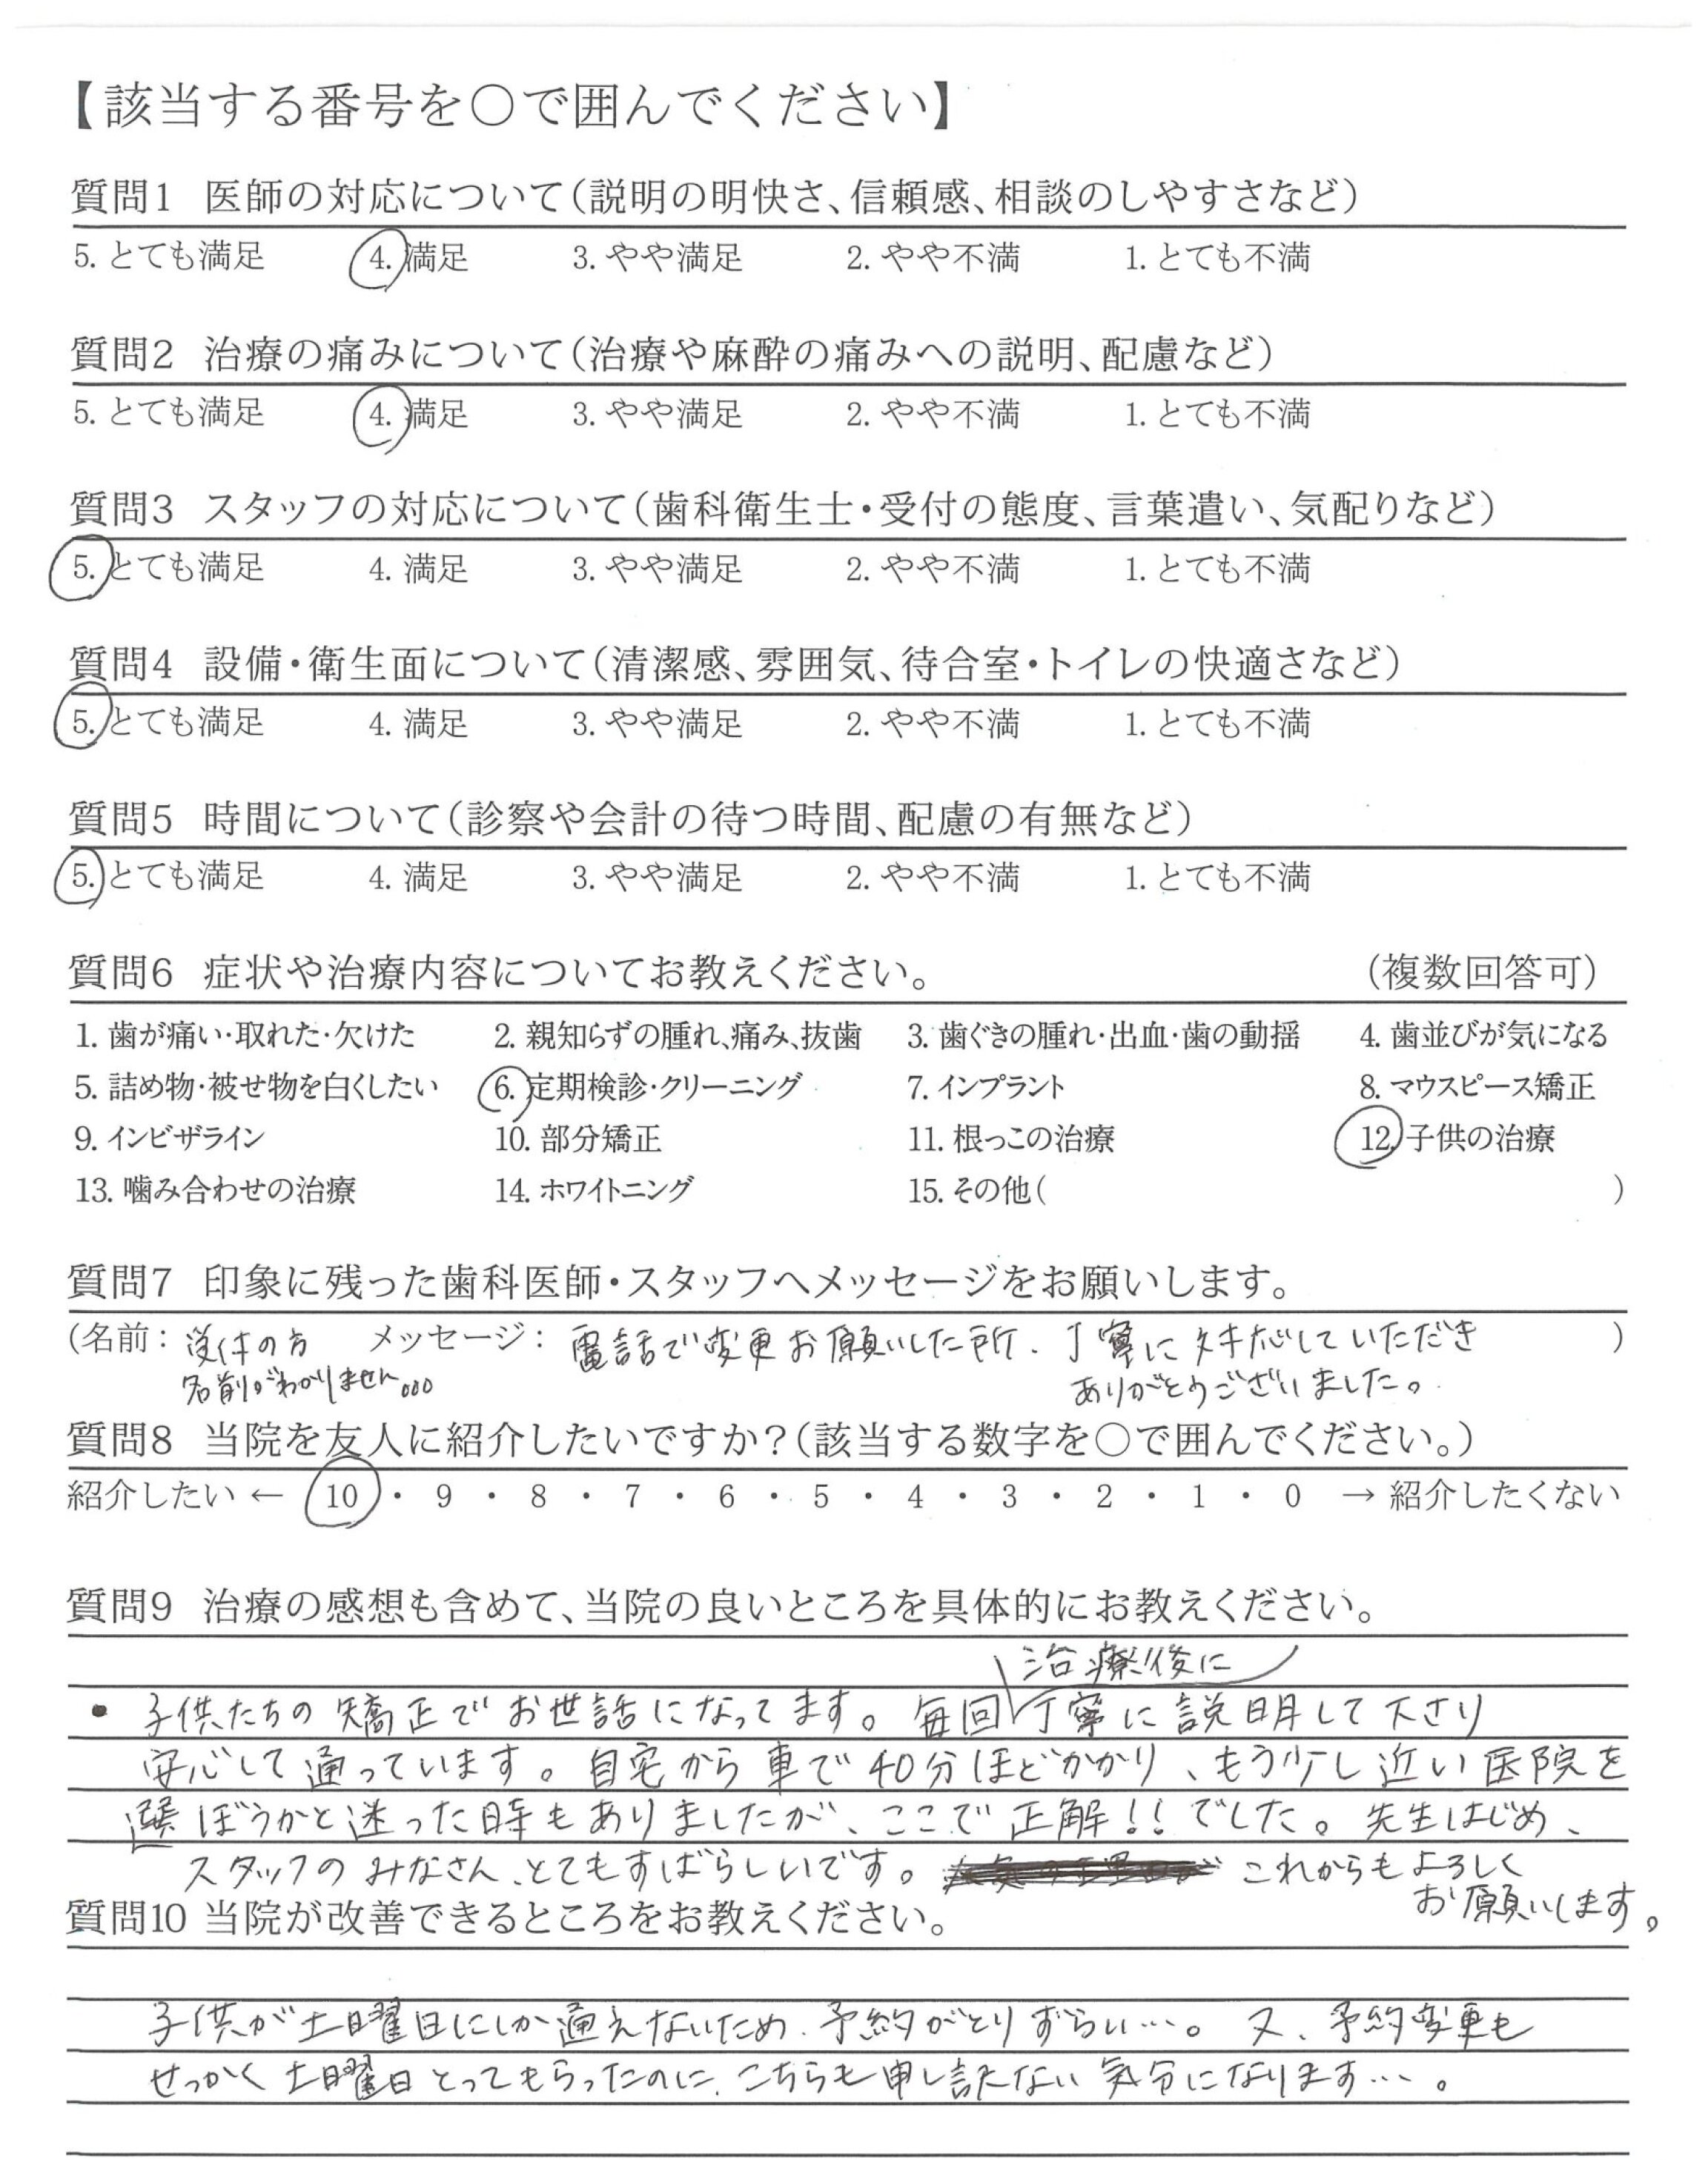 【該当する番号を〇で囲んでください】
質問1 医師の対応について(説明の明快さ、信頼感、相談のしやすさなど)
5. とても満足 4. 満足 3. やや満足 2. やや不満 1. とても不満
質問2 治療の痛みについて(治療や麻酔の痛みへの説明、配慮など)
5. とても満足 4. 満足 3. やや満足 2. やや不満 1. とても不満
質問3 スタッフの対応について(歯科衛生士・受付の態度、言葉遣い、気配りなど)
5. とても満足 4. 満足 3. やや満足 2. やや不満 1. とても不満
質問4 設備・衛生面について(清潔感、雰囲気、待合室・トイレの快適さなど)
5. とても満足 4. 満足 3. やや満足 2. やや不満 1. とても不満
質問5 時間について(診察や会計の待つ時間、配慮の有無など)
5. とても満足 4. 満足 3. やや満足 2. やや不満 1. とても不満
質問6 症状や治療内容についてお教えください。 (複数回答可)
1. 歯が痛い・取れた・欠けた 2. 親知らずの腫れ、痛み、抜歯 3. 歯ぐきの腫れ・出血・歯の動揺 4. 歯並びが気になる
5. 詰め物・被せ物を白くしたい 6. 定期検診・クリーニング 7. インプラント 8. マウスピース矯正
9. インビザライン 10. 部分矯正 11. 根っこの治療 12. 子供の治療
13. 噛み合わせの治療 14. ホワイトニング 15. その他( )
質問7 印象に残った歯科医師・スタッフへメッセージをお願いします。
(名前: 受付の方 メッセージ: 電話で変更お願いした所、丁寧に対応していただき )
名前がわかりません。。。 ありがとうございました。
質問8 当院を友人に紹介したいですか?(該当する数字を〇で囲んでください。)
紹介したい ← 10 ・ 9 ・ 8 ・ 7 ・ 6 ・ 5 ・ 4 ・ 3 ・ 2 ・ 1 ・ 0 → 紹介したくない
質問9 治療の感想も含めて、当院の良いところを具体的にお教えください。
治療後に
・子供たちの矯正でお世話になってます。毎回丁寧に説明して下さり
安心して通っています。自宅から車で40分ほどかかり、もう少し近い医院を
選ぼうかと迷った時もありましたが、ここで正解!!でした。先生はじめ、
スタッフのみなさん、とてもすばらしいです。 これからもよろしく
お願いします。
質問10 当院が改善できるところをお教えください。
子供が土曜日にしか通えないため、予約がとりずらい…。又、予約変更も
せっかく土曜日とってもらったのに、こちらも申し訳ない気分になります…。